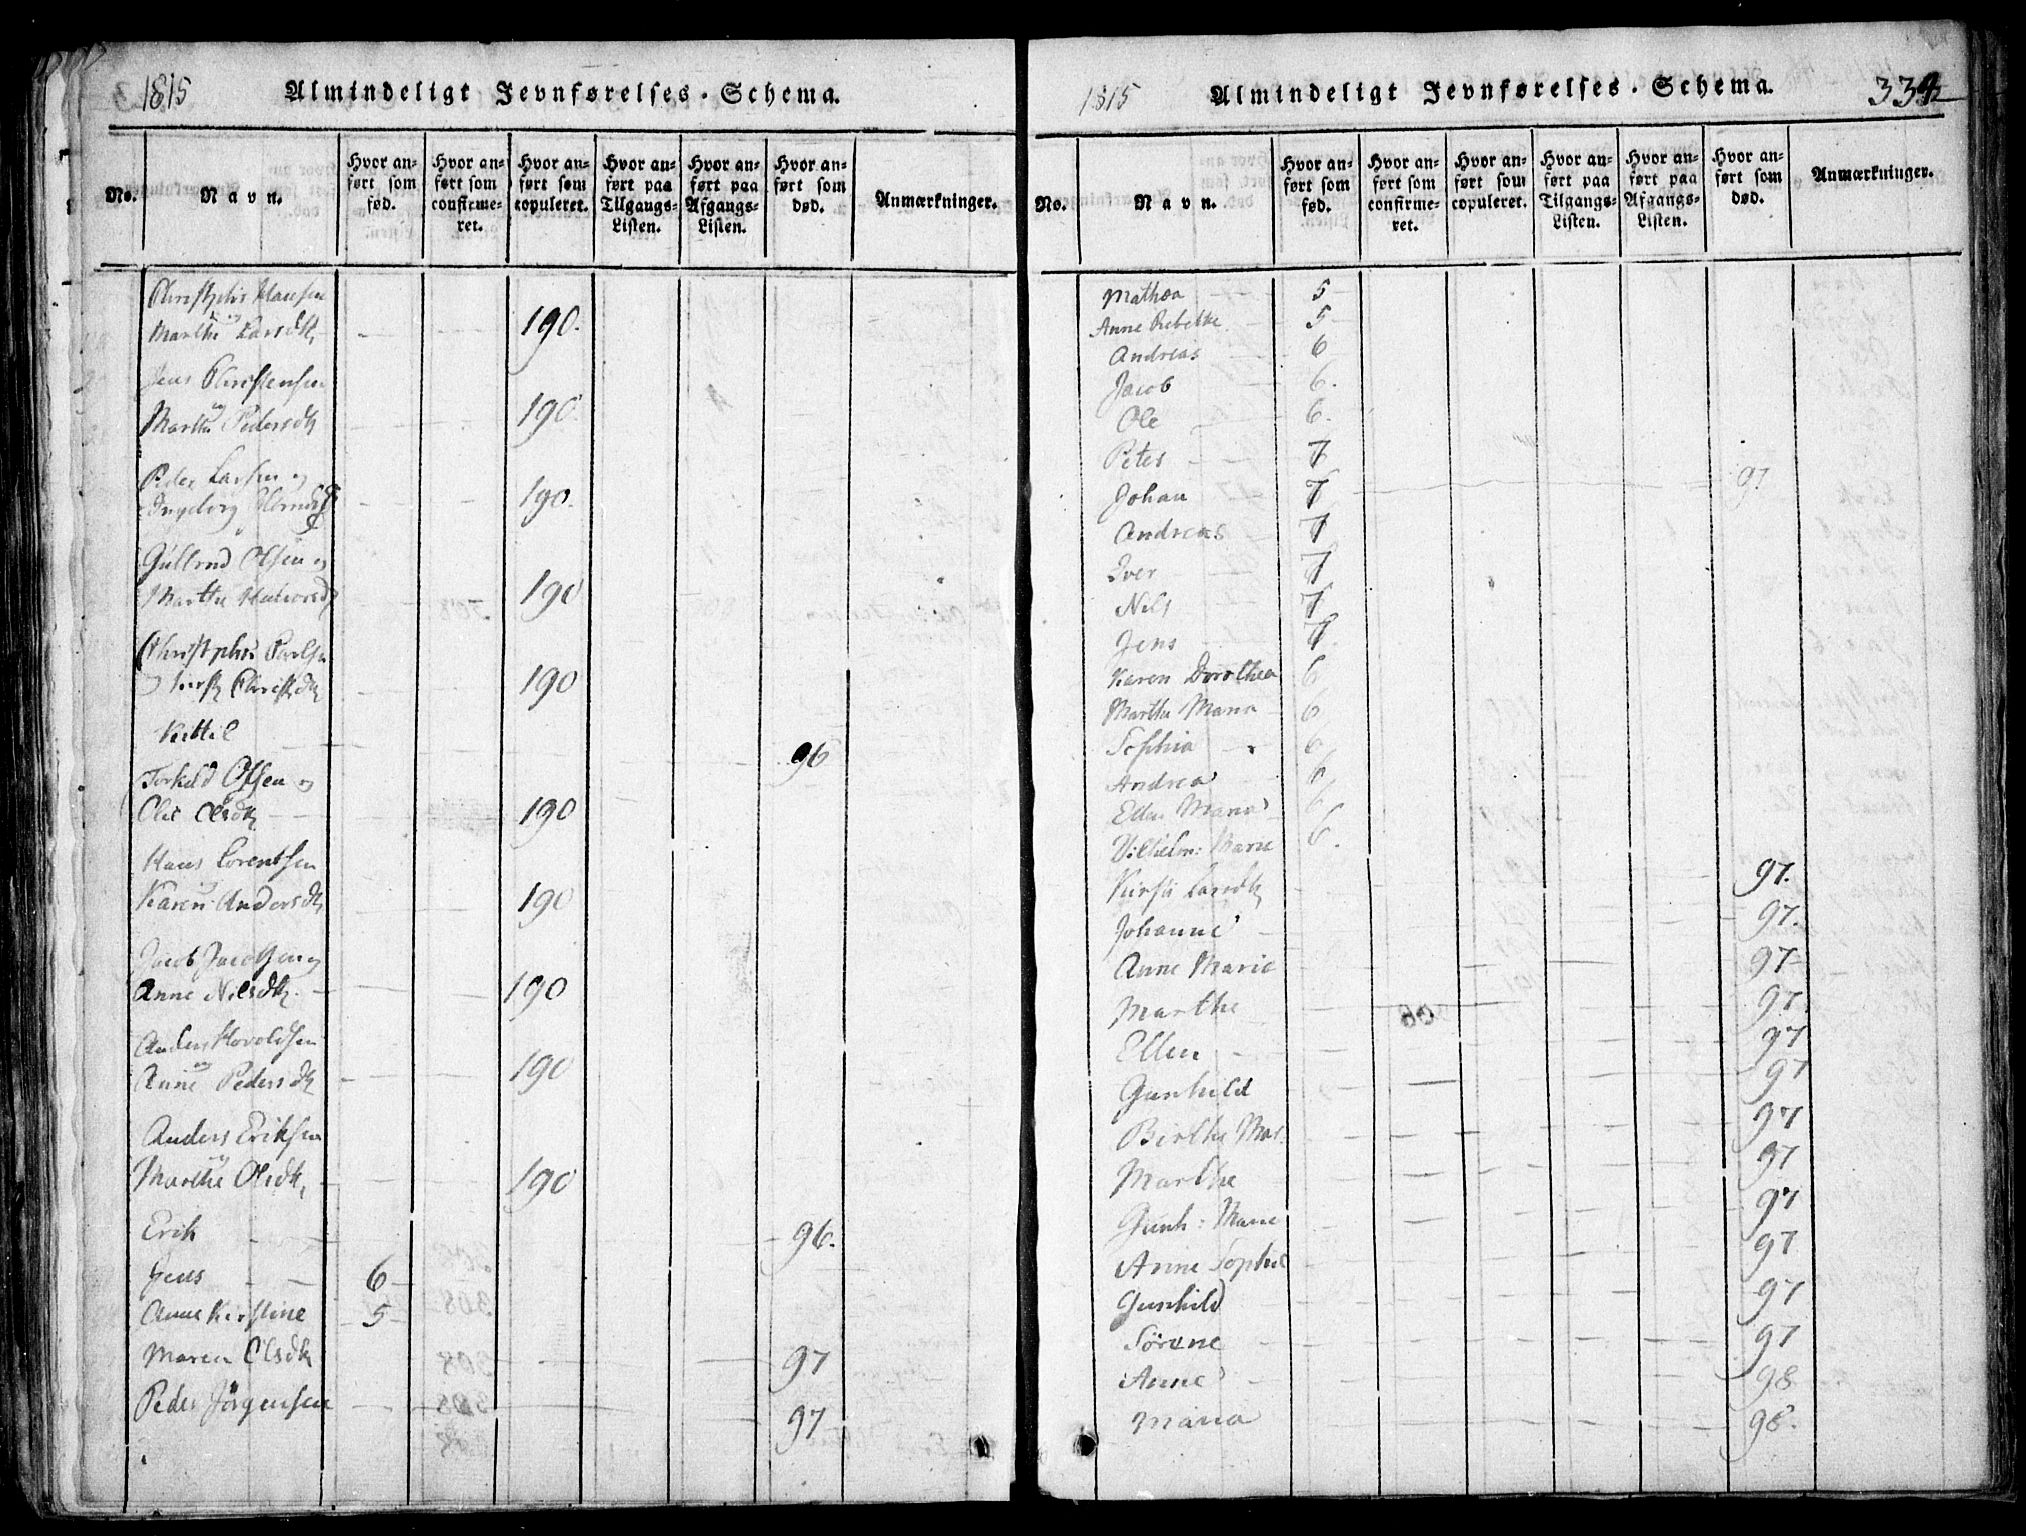 1815 Almindeligt Jevnførelses-Schema.
No. Navn. Hvor anført som fød. Hvor anført som confirmeret. Hvor anført som copuleret. Hvor anført paa Tilgangs-Listen. Hvor anført paa Afgangs-Listen. Hvor anført som død. Anmærkninger.
Christopher Hansen
og
Marthe Larsdtr 190.
Jens Christensen
og
Marthe Pedersdtr 190
Peder Larsen og
Ingeborg 190.
Gulbrnd Olsen og
Marthe Halvorsd 190
Christopher
Christdtr 190
Kittil 96
Torkild Olsen og
Olie Olsdtr 190
Hans Lorentsen
Karen Andersdtr 190
Jacob Jacobsen og
Anne Nilsdtr. 190
Anders Horoldsen
og
Anne Pedersdtr 190
Anders Eriksen
og
Marthe Olsdtr 190
Erik 96.
Jens 6
Anne Kirstine 5
Maren Olsdtr 97
Peder Jörgensen 97
1815 Almindeligt Jevnførelses-Schema. 334
No. Navn. Hvor anført som fød. Hvor anført som confirmeret. Hvor anført som copuleret. Hvor anført paa Tilgangs-Listen. Hvor anført paa Afgangs-Listen. Hvor anført som død. Anmærkninger.
Mathea 5
Anne Rebekke 5
Andreas 6
Jacob 6.
Ole 6.
Peter 7
Johan 7 97
Andreas 7
Iver 7
Nils 7
Jens 7.
Karen Dorothea 6
Marthe Maria 6
Sophia 6
Andrea 6
Ellen Maria 6
Vilhelm: Marie 6.
Kirsti Larsdtr 97.
Johanne 97.
Anne Marie 97
Marthe 97
Ellen 97
Gunhild 97
Birthe Mar. 97
Marthe 97
Gunh: Marie 97
Anne Sophie 97
Gunhild 97
Sörene 97
Anne 98
Maria 98.